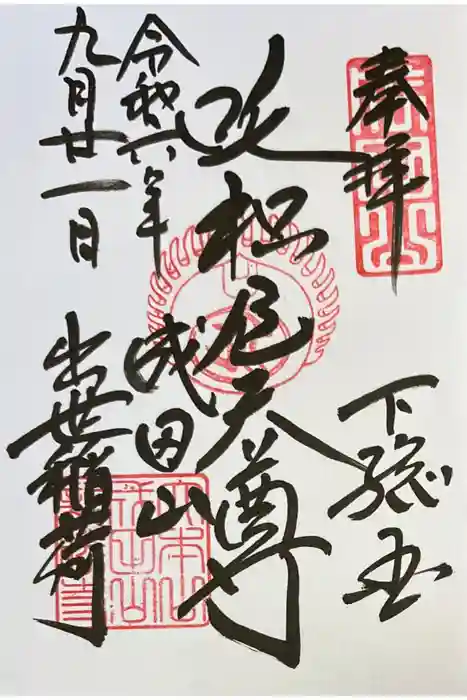 奉拝
下総国
枳尼天尊
成田山
令和六年
九月廿一日
出世稲荷